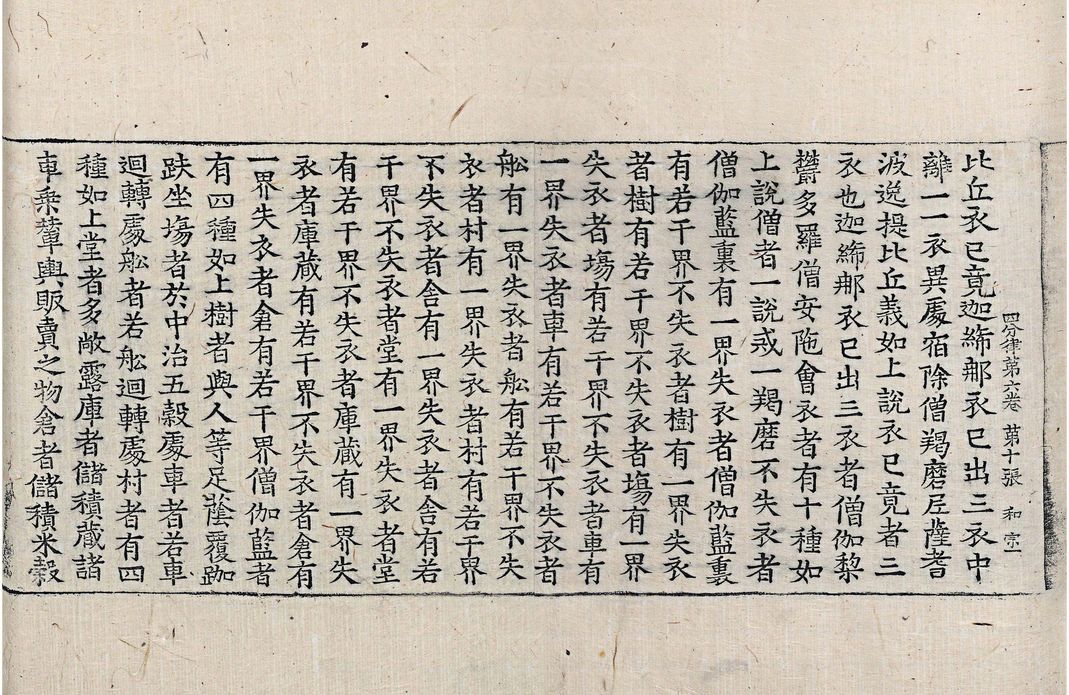 四分律第六卷 第十張 和 宗一
比丘衣已竟迦絺那衣已出三衣中
離一一衣異處宿除僧羯磨尼薩耆
波逸提比丘義如上說衣已竟者三
衣也迦絺那衣已出三衣者僧伽梨
欝多羅僧安陁會衣者有十種如
上說僧者一說戒一羯磨不失衣者
僧伽藍裏有一界失衣者僧伽藍裏
有若干界不失衣者樹有一界失衣
者樹有若干界不失衣者塲有一界
失衣者塲有若干界不失衣者車有
一界失衣者車有若干界不失衣者
舩有一界失衣者舩有若干界不失
衣者村有一界失衣者村有若干界
不失衣者舍有一界失衣者舍有若
干界不失衣者堂有一界失衣者堂
有若干界不失衣者庫蔵有一界失
衣者庫蔵有若干界不失衣者倉有
一界失衣者倉有若干界僧伽藍者
有四種如上樹者與人等足蔭覆跏
趺坐塲者於中治五穀處車者若車
迴轉處舩者若舩迴轉處村者有四
種如上堂者多敞露庫者儲積蔵諸
車乗輦輿販賣之物倉者儲積米穀